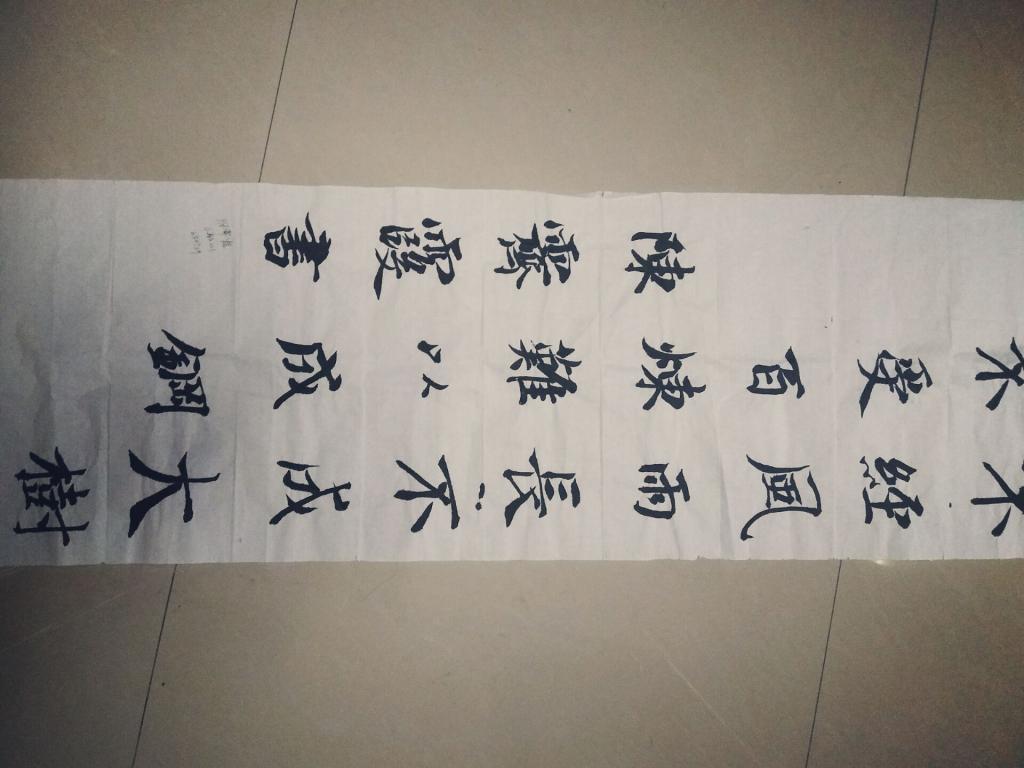 不經風雨長不成大樹
不受百煉難以成鋼
陳霽霞書